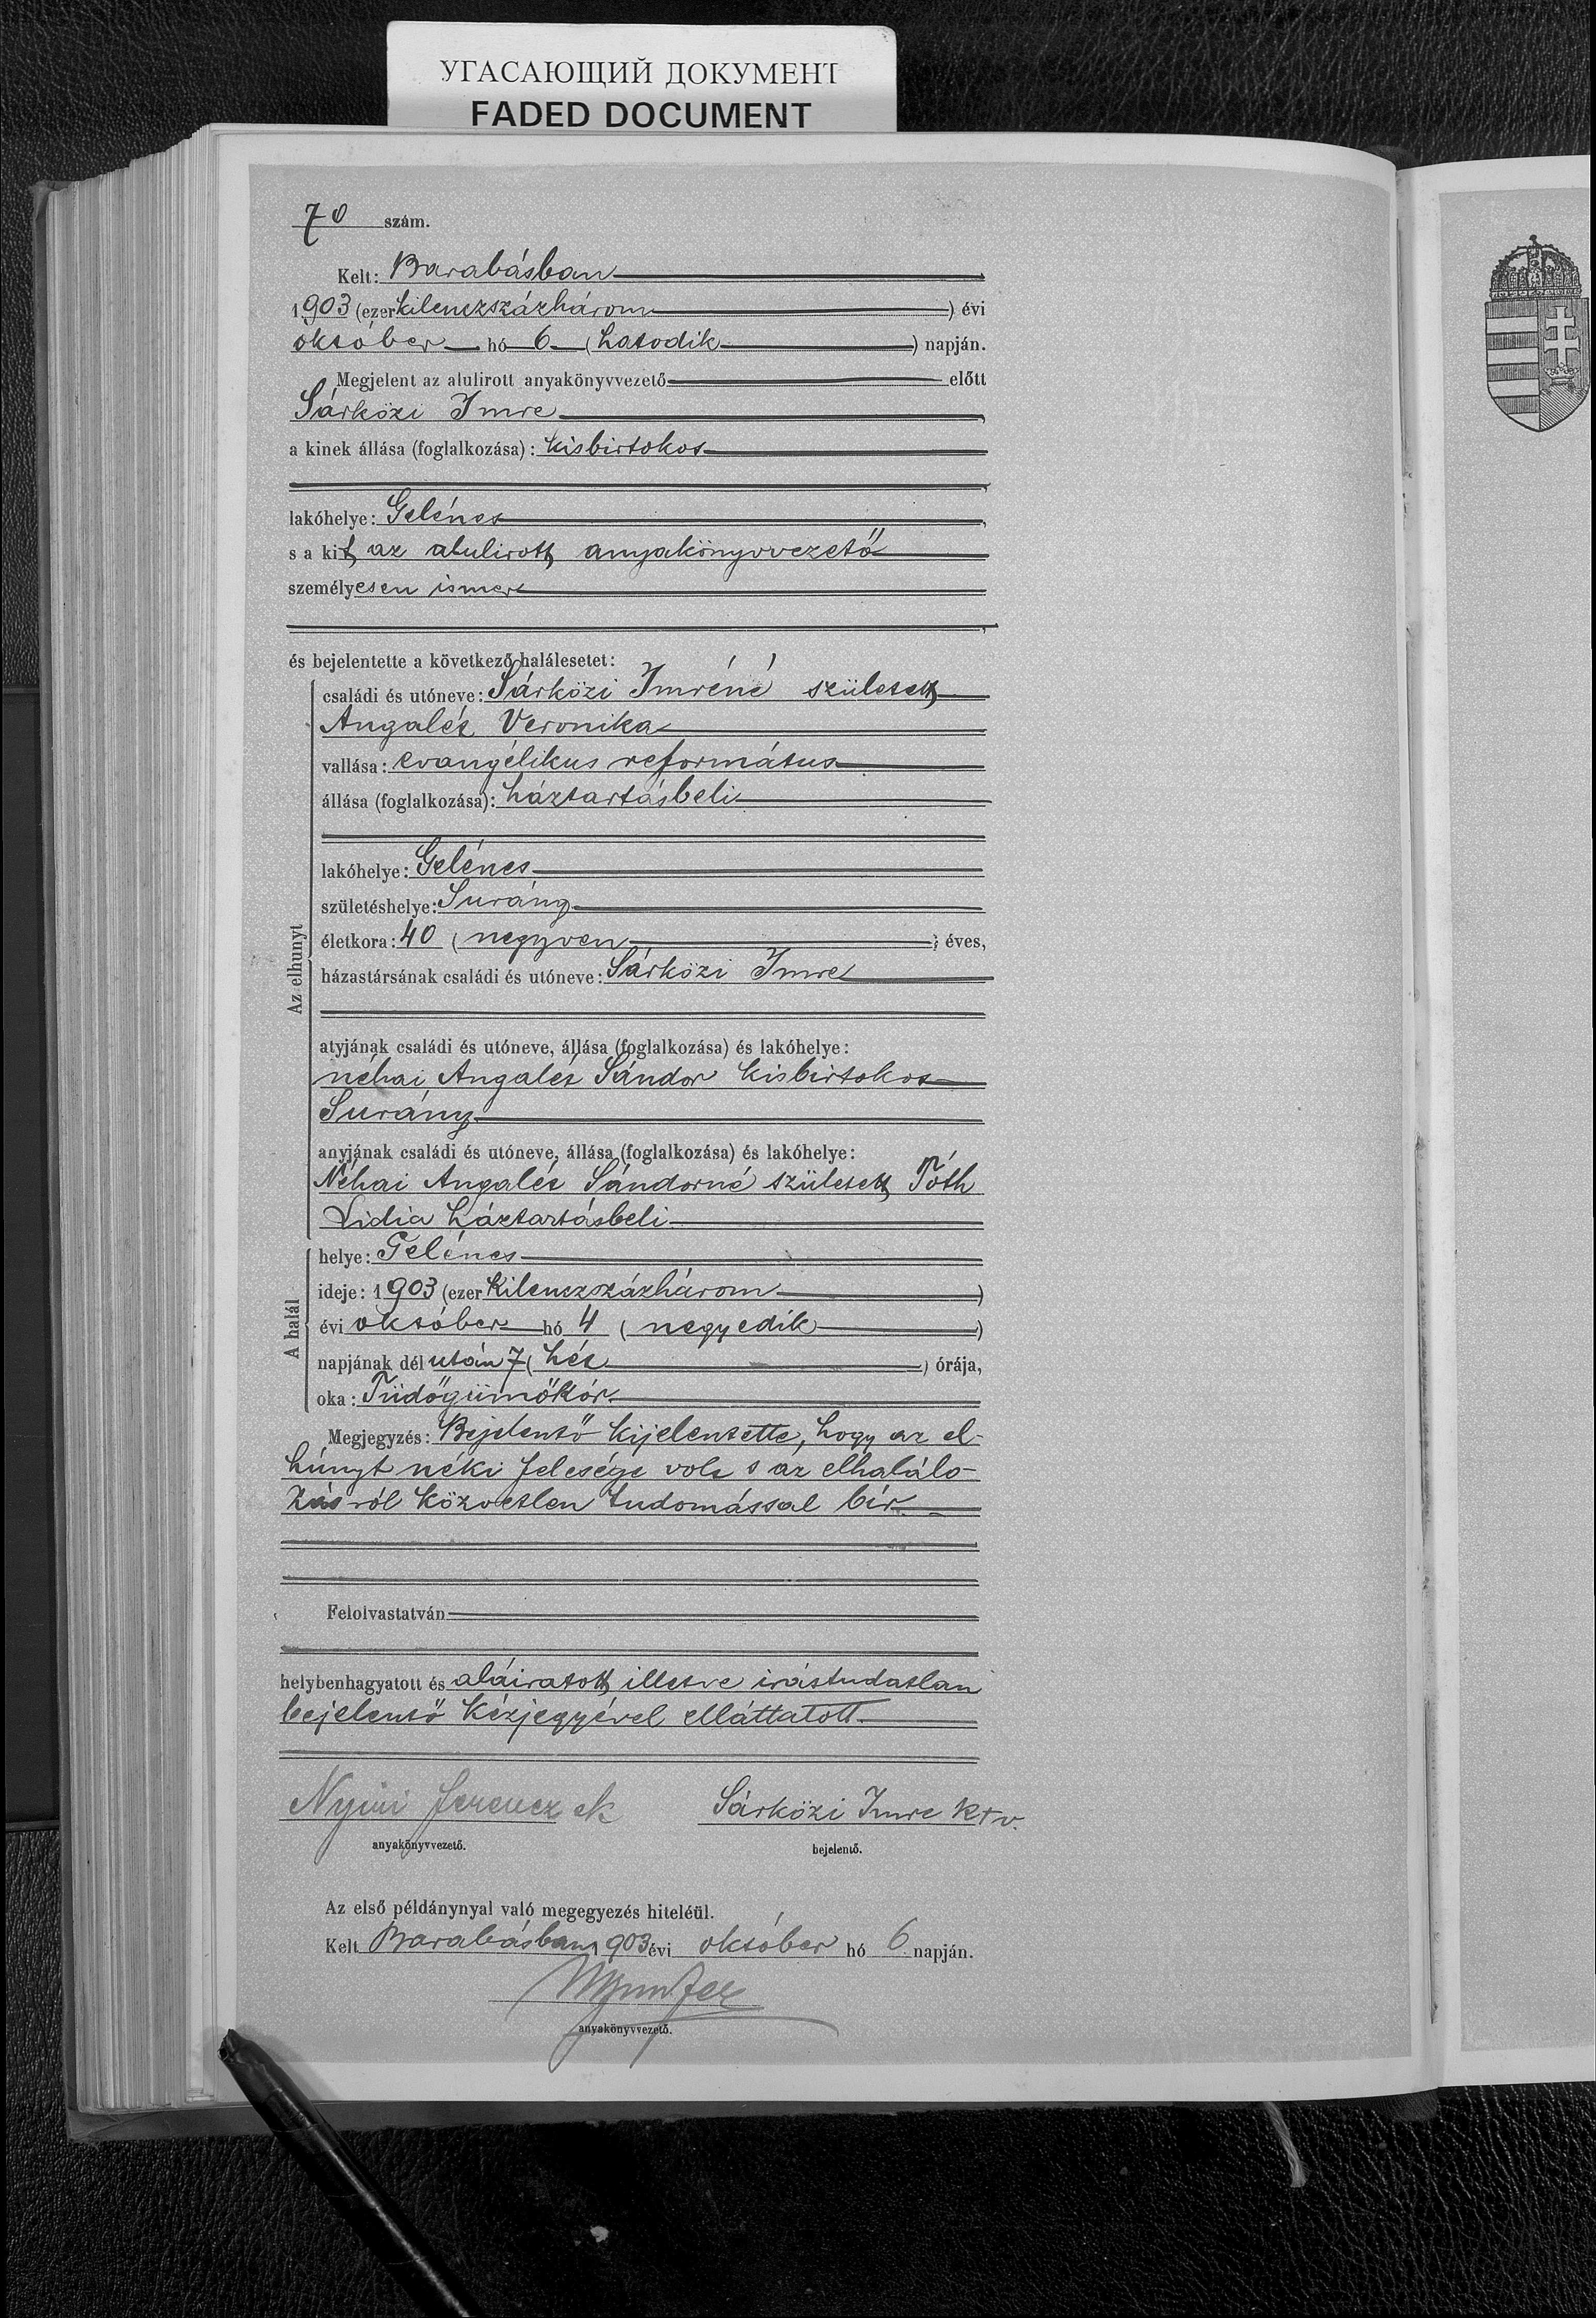 УГАСАЮЩИЙ ДОКУМЕНТ
FADED DOCUMENT
70 szám.
Kelt: Barabásban
1903 (ezer kilenczszázhárom ) évi
október hó 6 (hatodik ) napján.
Megjelent az alulirott anyakönyvvezető előtt
Sárközi Imre ,
a kinek állása (foglalkozása): kisbirtokos
lakóhelye: Gelénes ,
s a kit az alulirott anyakönyvvezető
személyesen ismer
és bejelentette a következő halálesetet:
Az elhunyt
családi és utóneve: Sárközi Imréné született
Angalét Veronika
vallása: evangélikus református
állása (foglalkozása): háztartásbeli
lakóhelye: Gelénes
születéshelye: Surány
életkora: 40 (negyven ) éves,
házastársának családi és utóneve: Sárközi Imre
atyjának családi és utóneve, állása (foglalkozása) és lakóhelye:
néhai Angalét Sándor kisbirtokos
Surány
anyjának családi és utóneve, állása (foglalkozása) és lakóhelye:
Néhai Angalét Sándorné született Tóth
Lidia háztartásbeli
A halál
helye: Gelénes
ideje: 1903 (ezer kilenczszázhárom )
évi október hó 4 (negyedik )
napjának dél után 7 (hét ) órája,
oka: Tüdőgümőkór
Megjegyzés: Bejelentő kijelentette, hogy az el-
húnyt néki felesége volt s az elhalálo-
zásról közvetlen tudomással bír
Felolvastatván
helybenhagyatott és aláiratott illetve irástudatlan
bejelentő kézjegyével elláttatott.
Nyiri Ferencz sk Sárközi Imre k+v.
anyakönyvvezető. bejelentő.
Az első példánynyal való megegyezés hiteléül.
Kelt Barabásban 1903 évi október hó 6 napján.
anyakönyvvezető.